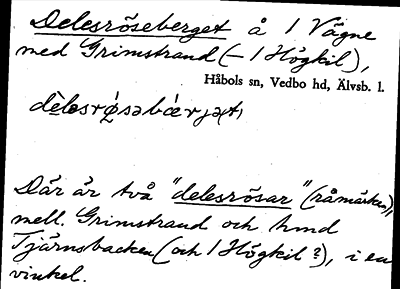 Delesröseberget å 1 Vägne
med Grimstrand (– 1 Högkil),
Håbols sn, Vedbo hd, Älvsb. l.
Där är två "delesrösar" (råmärken),
mell. Grimstrand och hmd
Tjärnsbacken (och 1 Högkil?), i en
vinkel.